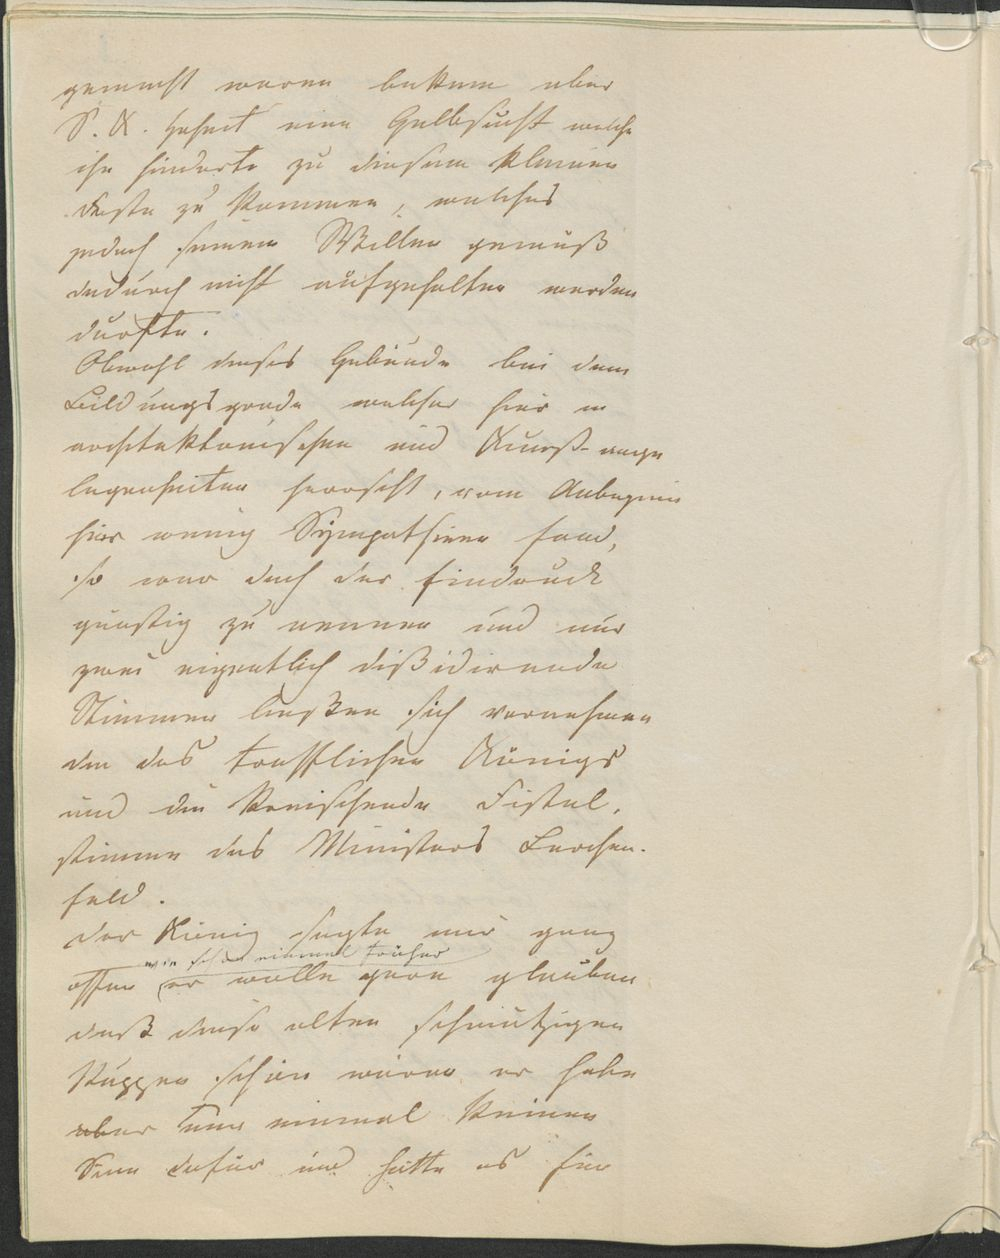 gemacht waren bekam aber
S. K. Hoheit eine Gelbsucht welche
ihn hinderte zu diesem kleinen
Feste zu kommen, welches
jedoch seinem Willen gemäß
dadurch nicht aufgehalten werden
durfte.
Obwohl dieses Gebäude bei dem
Bildungsgrade welcher hier in
architektonischen und Kunst-ange
legenheiten herrscht, vom Anbeginn
hier wenig Sympathieen fand,
so war doch der Eindruck
günstig zu nennen und nur
zwei eigentlich dißidirende
Stimmen ließen sich vernehmen
die des trefflichen Königs
und die kreischende Fistel,
stimme des Ministers Lerchen-
feld.
Der König sagte mir ganz
wie schon einmal früher
offen er wolle gern glauben
daß diese alten schmutzigen
Puppen schön wären er habe
aber nun einmal keinen
Sinn dafür und hätte es für